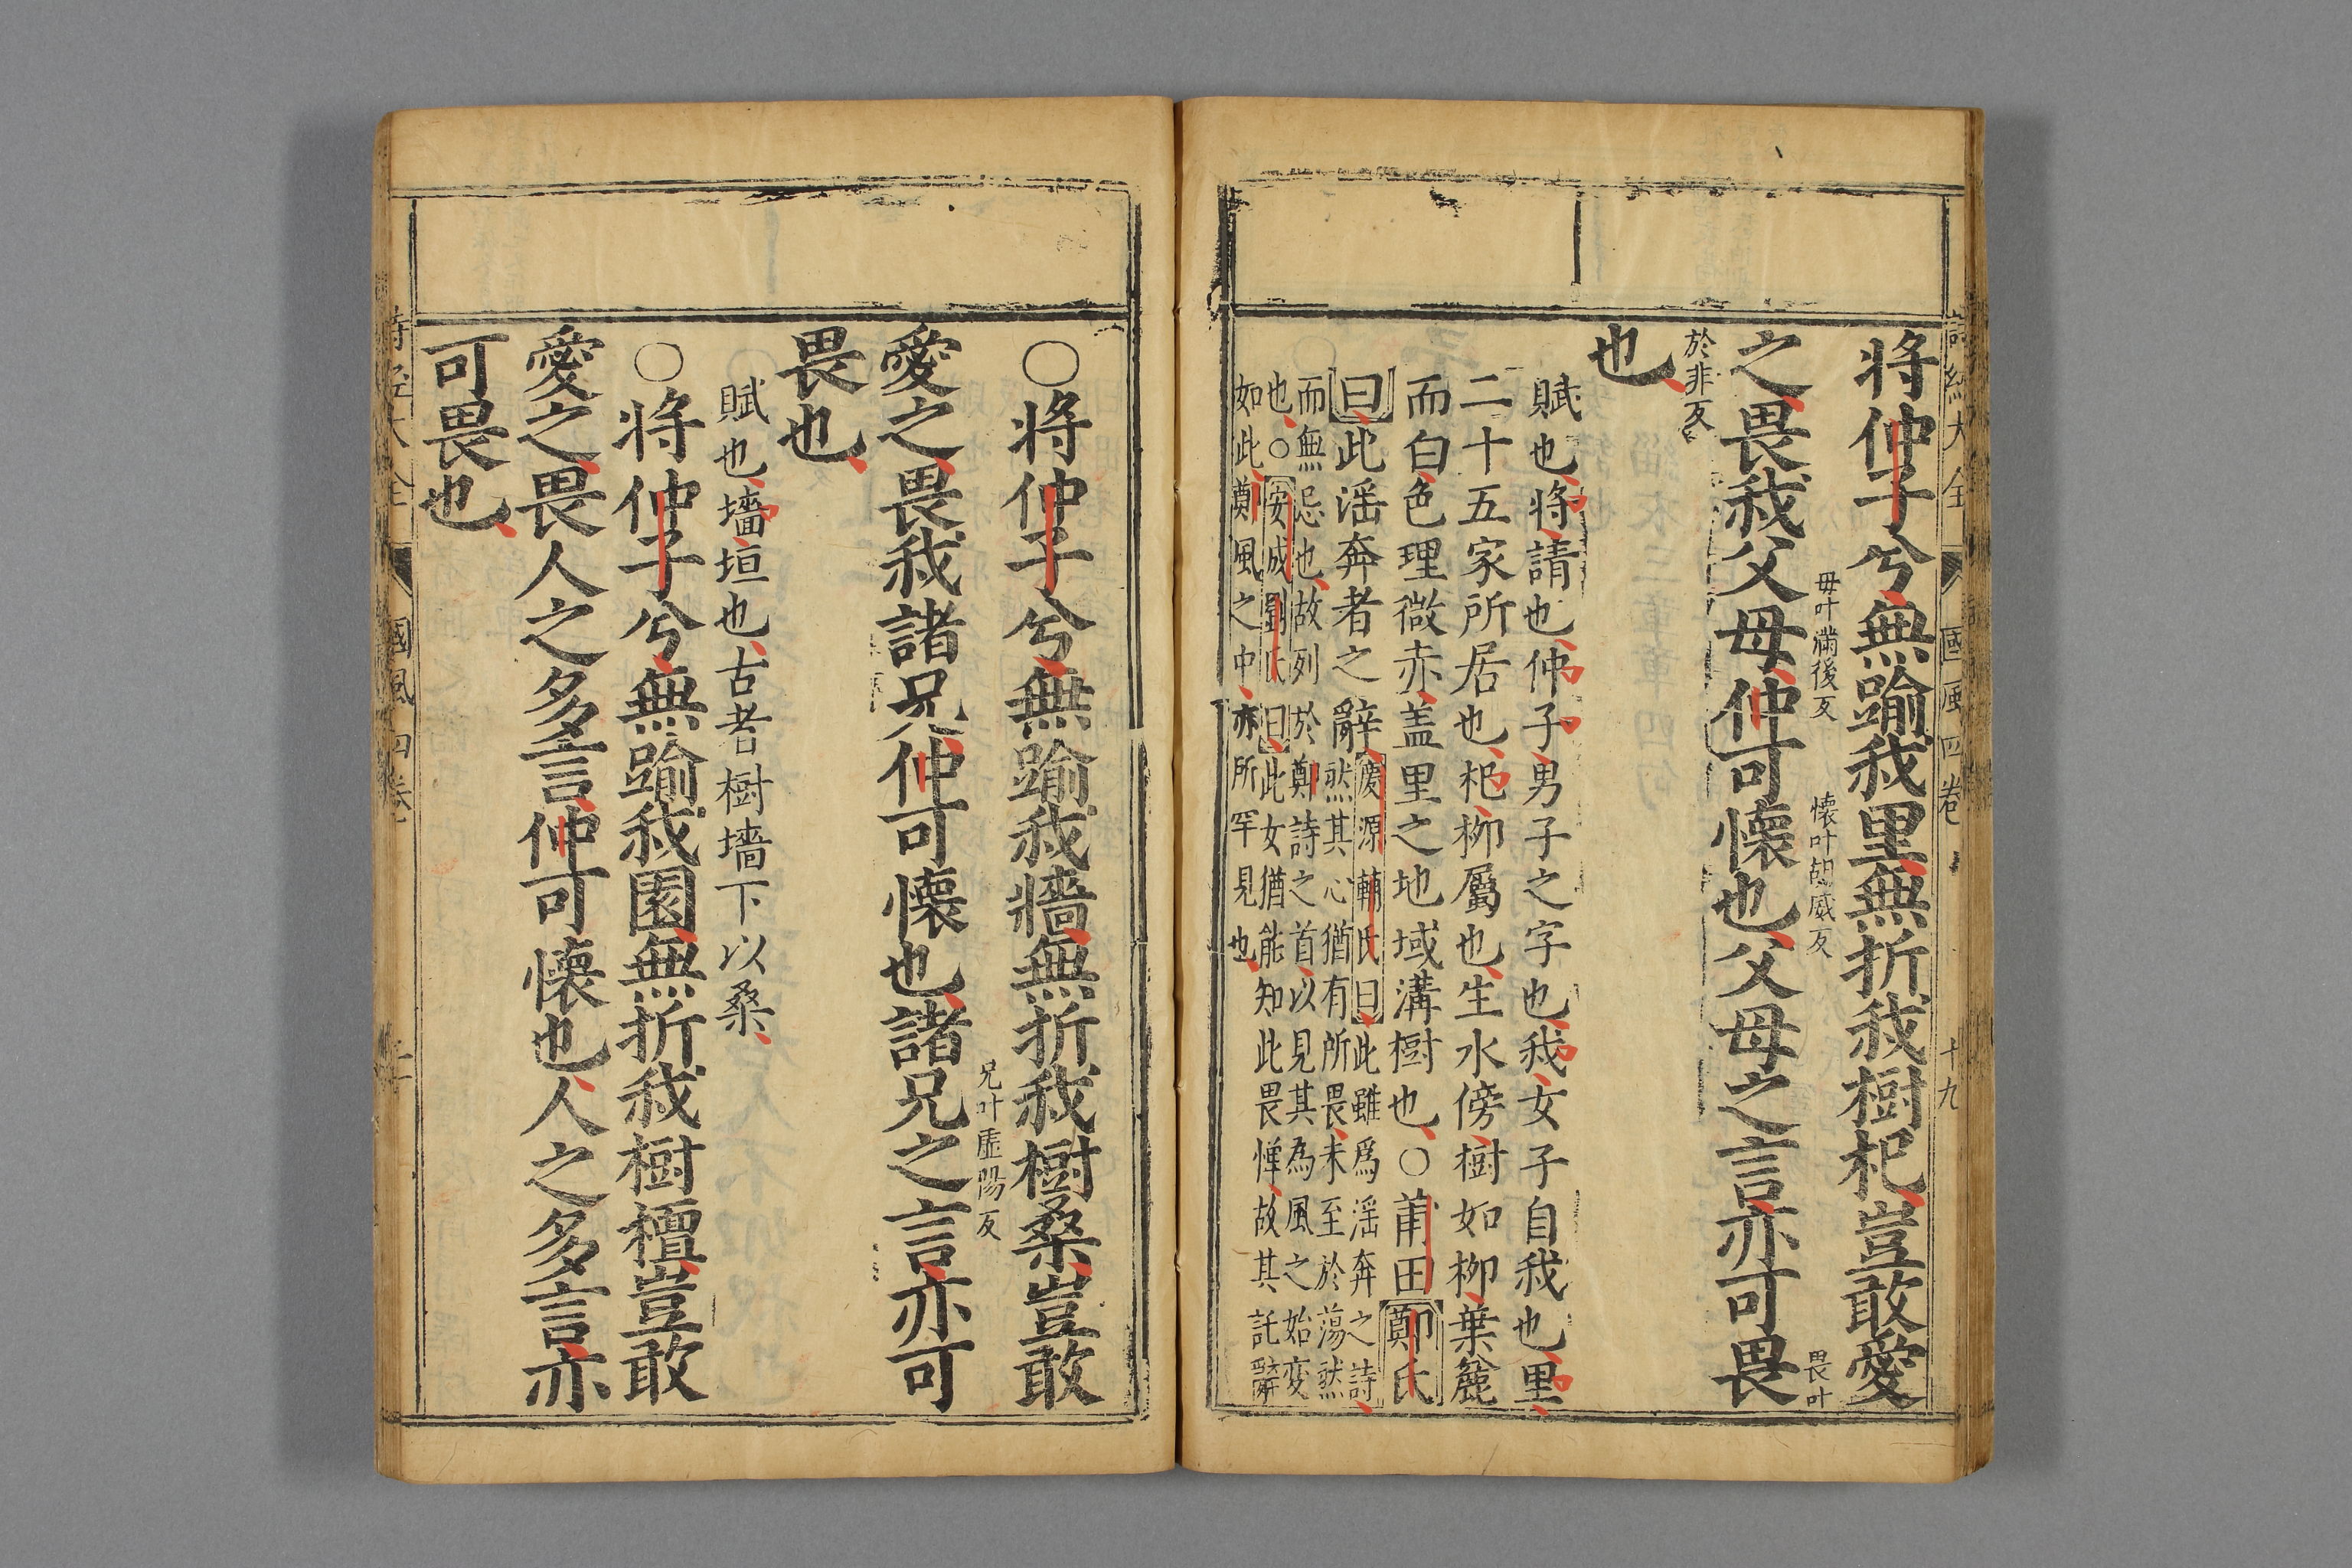 詩經大全 國風四卷 十九
將仲子兮無踰我里無折我樹杞豈敢愛
母叶滿後反 懷叶胡威反 畏叶
之畏我父母仲可懷也父母之言亦可畏
於非反
也
賦也將請也仲子男子之字也我女子自我也里
二十五家所居也杞柳屬也生水傍樹如柳葉麄
而白色理微赤盖里之地域溝樹也○莆田鄭氏
曰此滛奔者之辭
慶源輔氏曰此雖爲滛奔之詩
然其心猶有所畏未至於蕩然
而無忌也故列於鄭詩之首以見其為風之始変
也○安成劉氏曰此女猶能知此畏惮故其託辭
如此鄭風之中亦所罕見也
○將仲子兮無踰我牆無折我樹桑豈敢
兄叶虛陽反
愛之畏我諸兄仲可懷也諸兄之言亦可
畏也
賦也墻垣也古者樹墻下以桑
○將仲子兮無踰我園無折我樹檀豈敢
愛之畏人之多言仲可懷也人之多言亦
可畏也
詩經大全 國風四卷